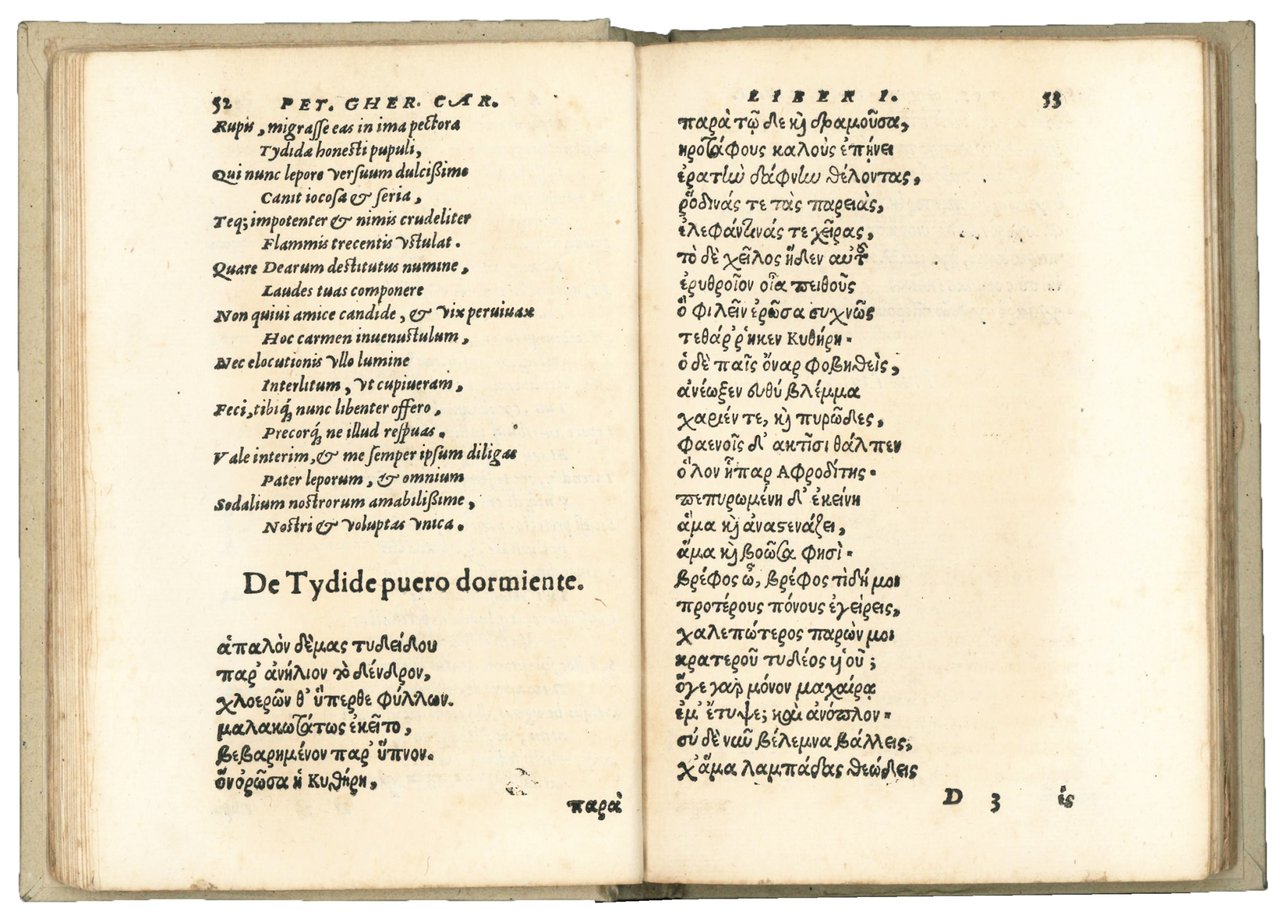 52 PET. GHER. CAR.
Rupis, migrasse eas in ima pectora
Tydidæ honesti pupuli,
Qui nunc lepore versuum dulcißimo
Canit iocosa & seria,
Teq; impotenter & nimis crudeliter
Flammis trecentis vstulat.
Quare Dearum destitutus numine,
Laudes tuas componere
Non quiui amice candide, & vix peruiuax
Hoc carmen inuenustulum,
Nec elocutionis vllo lumine
Interlitum, vt cupiueram,
Feci, tibiq́, nunc libenter offero,
Precorq́, ne illud respuas.
Vale interim, & me semper ipsum diligas
Pater leporum, & omnium
Sodalium nostrorum amabilißime,
Nostri & voluptas vnica.
De Tydide puero dormiente.
ἁπαλὸν δέμας τυδείδου
παρ' ἀνήλιον τὸ δένδρον,
χλοερῶν θ' ὕπερθε φύλλων.
μαλακωτάτως ἐκεῖτο,
βεβαρημένον παρ' ὕπνον.
ὃν ὁρῶσα ἡ Κυθήρη,
παρὰ
LIBER I. 53
παρὰ τῷ δε καὶ δραμοῦσα,
κροτάφους καλοὺς ἐπῄνει
ἐρατὴν δάφνην θέλοντας,
ῥοδινάς τε τὰς παρειὰς,
ἐλεφαντινάς τε χεῖρας,
τὸ δὲ χεῖλος ἥδεν αὐτοῦ
ἐρυθροῖον οἷα πειθοῦς
ὃ φιλεῖν ἐρῶσα συχνῶς
τεθάρρηκεν Κυθήρη·
ὁ δὲ παῖς ὄναρ φοβηθεὶς,
ἀνέωξεν εὐθὺ βλέμμα
χαρίεν τε, καὶ πυρῶδες,
φαενοῖς δ' ἀκτῖσι θάλπεν
ὅλον ἧπαρ Ἀφροδίτης·
πεπυρωμένη δ' ἐκείνη
ἅμα καὶ ἀναστενάζει,
ἅμα καὶ βοῶσα φησὶ·
βρέφος ὦ, βρέφος τὶ δή μοι
προτέρους πόνους ἐγείρεις,
χαλεπώτερος παρών μοι
κρατεροῦ τυδέος υἱοῦ;
ὅγε γαρ μόνον μαχαίρᾳ
ἔμ' ἔτυψε; καὶ ἄνοπλον·
σύ δὲ νῦν βέλεμνα βάλλεις,
χ' ἅμα λαμπάδας θεώδεις
D 3 εἰς